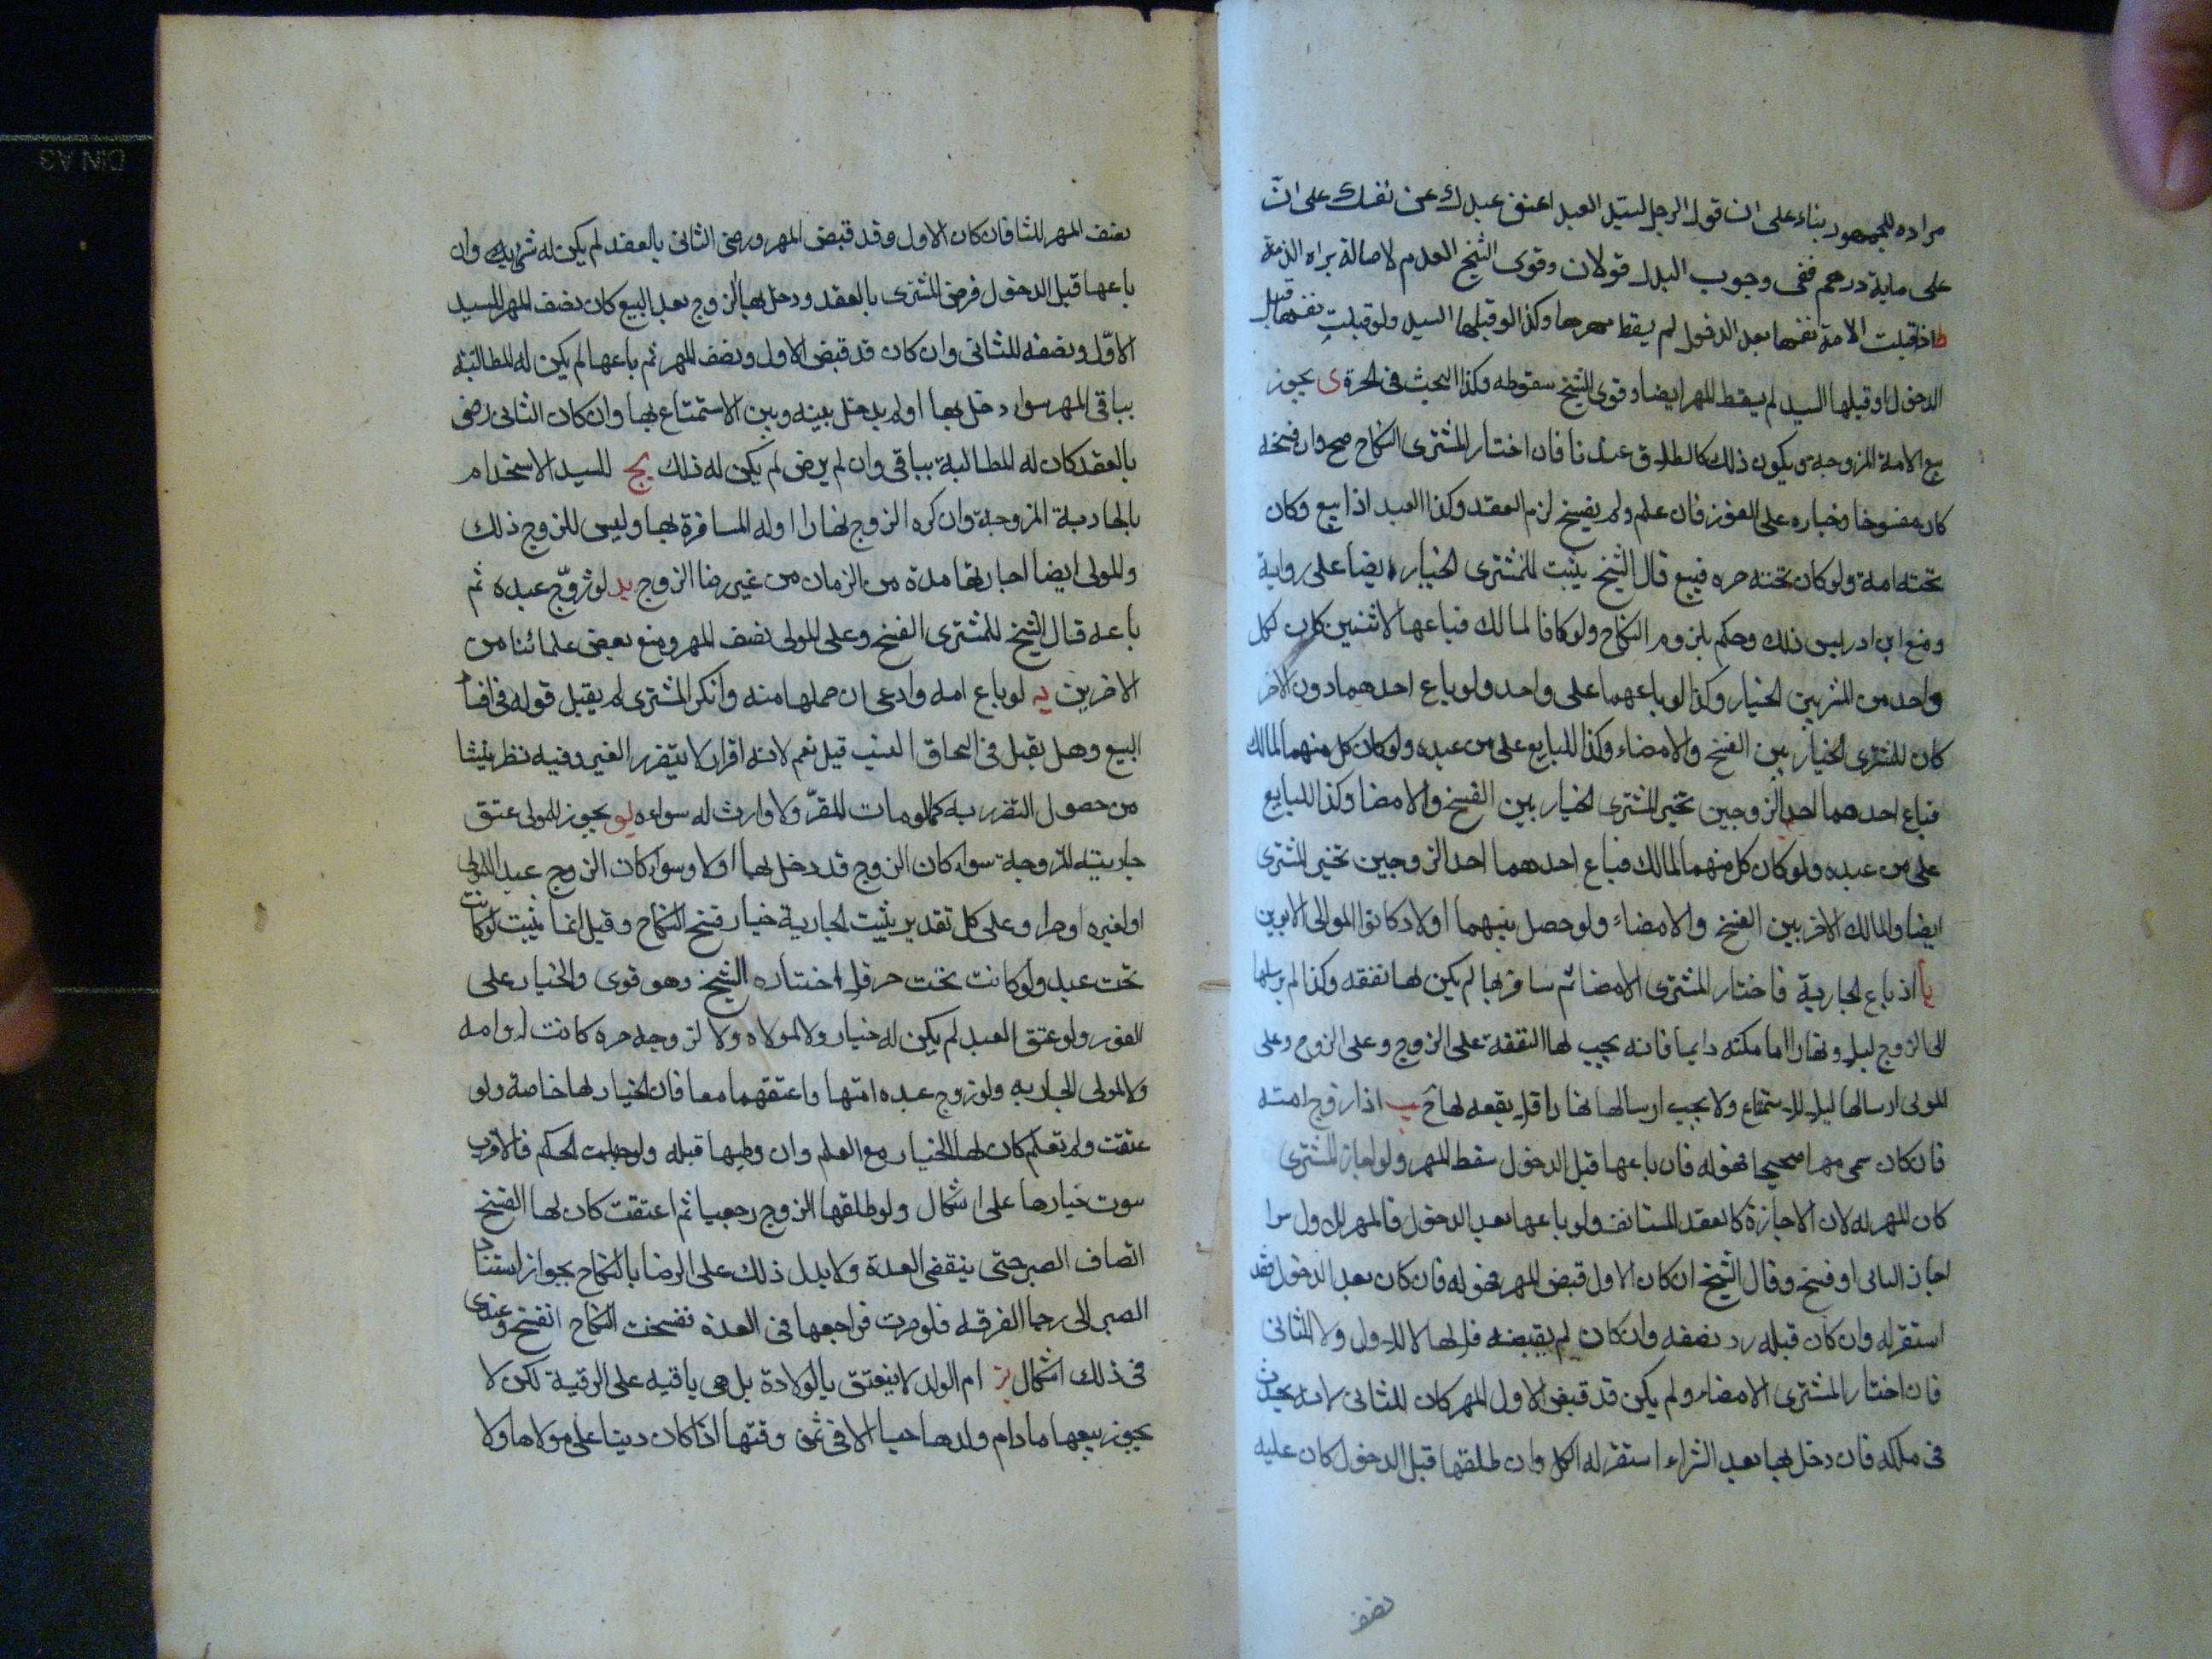 مراده للجمهور بناء على ان قول الرجل لسيد العبد اعتق عبدك عن نفسك على انّ
على ماية درهم ففى وجوب البدل قولان وقوى الشيخ العدم لاصالة براه الذمة
ط اذا قتلت الامة نفسها بعد الدخول لم يسقط مهرها وكذا لو قتلها السيد ولو قتلت نفسها قبل
الدخول او قتلها السيد لم يسقط المهر ايضا وقوى الشيخ سقوطه وكذا البحث فى الحرة ى يجوز
بيع الامة المزوجة ويكون ذلك كالطلاق عندنا فان اختار المشترى النكاح صح وان فسخه
كان مفسوخا وخياره على الفور فان علم ولم يفسخ لزم العقد وكذا العبد اذا بيع وكان
تحته امة ولو كان تحته حره فبيع قال الشيخ يثبت للمشترى الخيار ايضا على رواية
ومنع ابن ادريس ذلك وحكم بلزوم النكاح ولو كانا لمالك فباعهما لاثنين كان لكل
واحد من المشريين الخيار وكذا لو باعهما على واحد ولو باع احدهما دون الاخر
كان للمشترى الخيار بين الفسخ والامضاء وكذا للبايع على من عبده ولو كان كل منهما لمالك
فباع احدهما احد الزوجين تخير المشترى الخيار بين الفسخ والامضا وكذا للبايع
على من عبده ولو كان كل منهما لمالك فباع احدهما احد الزوجين تخير المشترى
ايضا والمالك الاخر بين الفسخ والامضاء ولو حصل بينهما اولاد كانوا لموالى الابوين
يا اذ باع الجارية فاختار المشترى الامضا ثم سافر بها لم يكن لها نفقه وكذا لم يرسلها
الى الزوج ليلا ونهارا اما مكنه دايما فانه يجب لها النفقة على الزوج وعلى الزوج وعلى
المولى ارسالها ليلا للاستمتاع ولا يجب ارسالها نهارا فلا نفقه لها ح يب اذا زوج امته
فان كان سمى مهرا صحيحا فهو له فان باعها قبل الدخول سقط المهر ولو اجاز المشترى
كان المهر له لان الاجازة كالعقد المستانف ولو باعها بعد الدخول فالمهر للاول سوا
اجاز الثانى او فسخ وقال الشيخ ان كان الاول قبض المهر فهو له فان كان بعد الدخول فقد
استقر له وان كان قبله رد نصفه وان كان لم يقبضه فلا لها لا للاول ولا للثانى
فان اختار المشترى الامضاء ولم يكن قد قبض الاول المهر كان للثانى لانه يحدث
فى ملكه فان دخل بها بعد الشراء استقر له الكل وان طلقها قبل الدخول كان عليه
نصف
نصف المهر للثا فان كان الاول وقد قبض المهر ورضى الثانى بالعقد لم يكن له شى يك وان
باعها قبل الدخول فرضى المشترى بالعقد ودخل بها الزوج بعد البيع كان نصف المهر للسيد
الاوّل ونصفه للثانى وان كان قد قبض الاول ونصف المهر ثم باعها لم يكن له المطالبة
بباقى المهر سواء دخل بها او لم يدخل بينه وبين الاستمتاع بها وان كان الثانى رضى
بالعقد كان له المطالبة بباقى وان لم يرض لم يكن له ذلك يج للسيد الاستخدام
بالجارية المزوجة وان كره الزوج نهارا وله المسافرة بها وليس للزوج ذلك
وللمولى ايضا اجارتها مدة من الزمان من غير رضا الزوج يد لو تزوّج عبده ثم
باعه قال الشيخ للمشترى الفسخ وعلى المولى نصف المهر ومنع بعض علمائنا من
الاخرين يه لو باع امه وادعى ان حملها منه وانكر المشترى لم يقبل قوله فى افساد
البيع وهل يقبل فى التحاق النسب قيل نعم لانه اقرار لا يتضرر الغير وفيه نظر ينشا
من حصول التضرر به كما لو مات المقرّ ولا وارث له سواه يو يجوز للمولى عتق
جاريته المزوجة سواء كان الزوج قد دخل بها اولا وسواء كان الزوج عبد المولى
او لغيره او حرا وعلى كل تقدير يثبت للجارية خيار فسخ النكاح وقيل انما يثبت لو كانت
تحت عبد ولو كانت تحت حر فلا اختاره الشيخ وهو قوى والخيار على
الفور ولو عتق العبد لم يكن له خيار ولا لمولاه ولا لزوجه حره كانت او امه
ولا لمولى الجاريه ولو زوج عبده امتها واعتقهما معا فان الخيار لها خاصة ولو
عتقت ولم تعلم كان لها الخيار مع العلم وان وطيها قبله ولو جهلت الحكم فالاقرب
سوت خيارها على اشكال ولو طلقها الزوج رجعيا ثم اعتقت كان لها الفسخ
اتصاف الصبر حتى ينقضى العدة ولا يدل ذلك على الرضا بالنكاح بجواز استناد
الصبر الى رجا الفرقه فلو مرت فراجعها فى العدة نفسخت النكاح انفسخ وعندى
فى ذلك اشكال يز ام الولد لا ينعتق بالولادة بل هى باقيه على الرقية لكن لا
يجوز بيعها ما دام ولدها حيا الا فى ثمن رقبتها اذا كان دينا على مولاها ولا